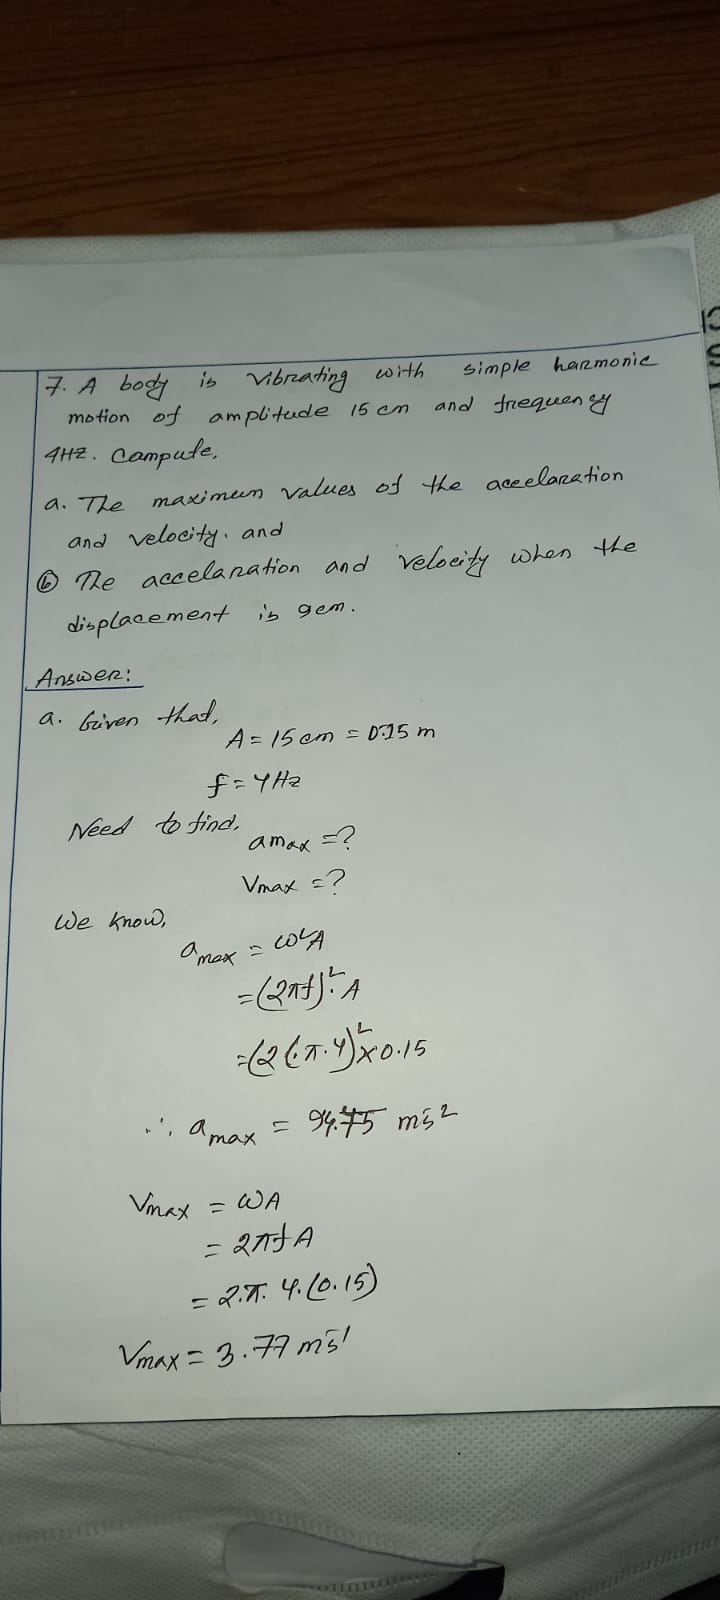 7. A body is vibrating with simple harmonic
motion of amplitude 15 cm and frequency
4HZ. Compute,
a. The maximum values of the accelaration
and velocity. and
ⓑ The accelaration and velocity when the
displacement is 9cm.
Answer:
a. Given that,
A = 15 cm = 0.15 m
f = 4 Hz
Need to find,
amax = ?
Vmax = ?
We know,
amax = ω²A
= (2πf)². A
= (2(.π.4)² × 0.15
∴ amax = 94.75 ms⁻²
Vmax = ωA
= 2πfA
= 2.π. 4.(0.15)
Vmax = 3.77 ms⁻¹